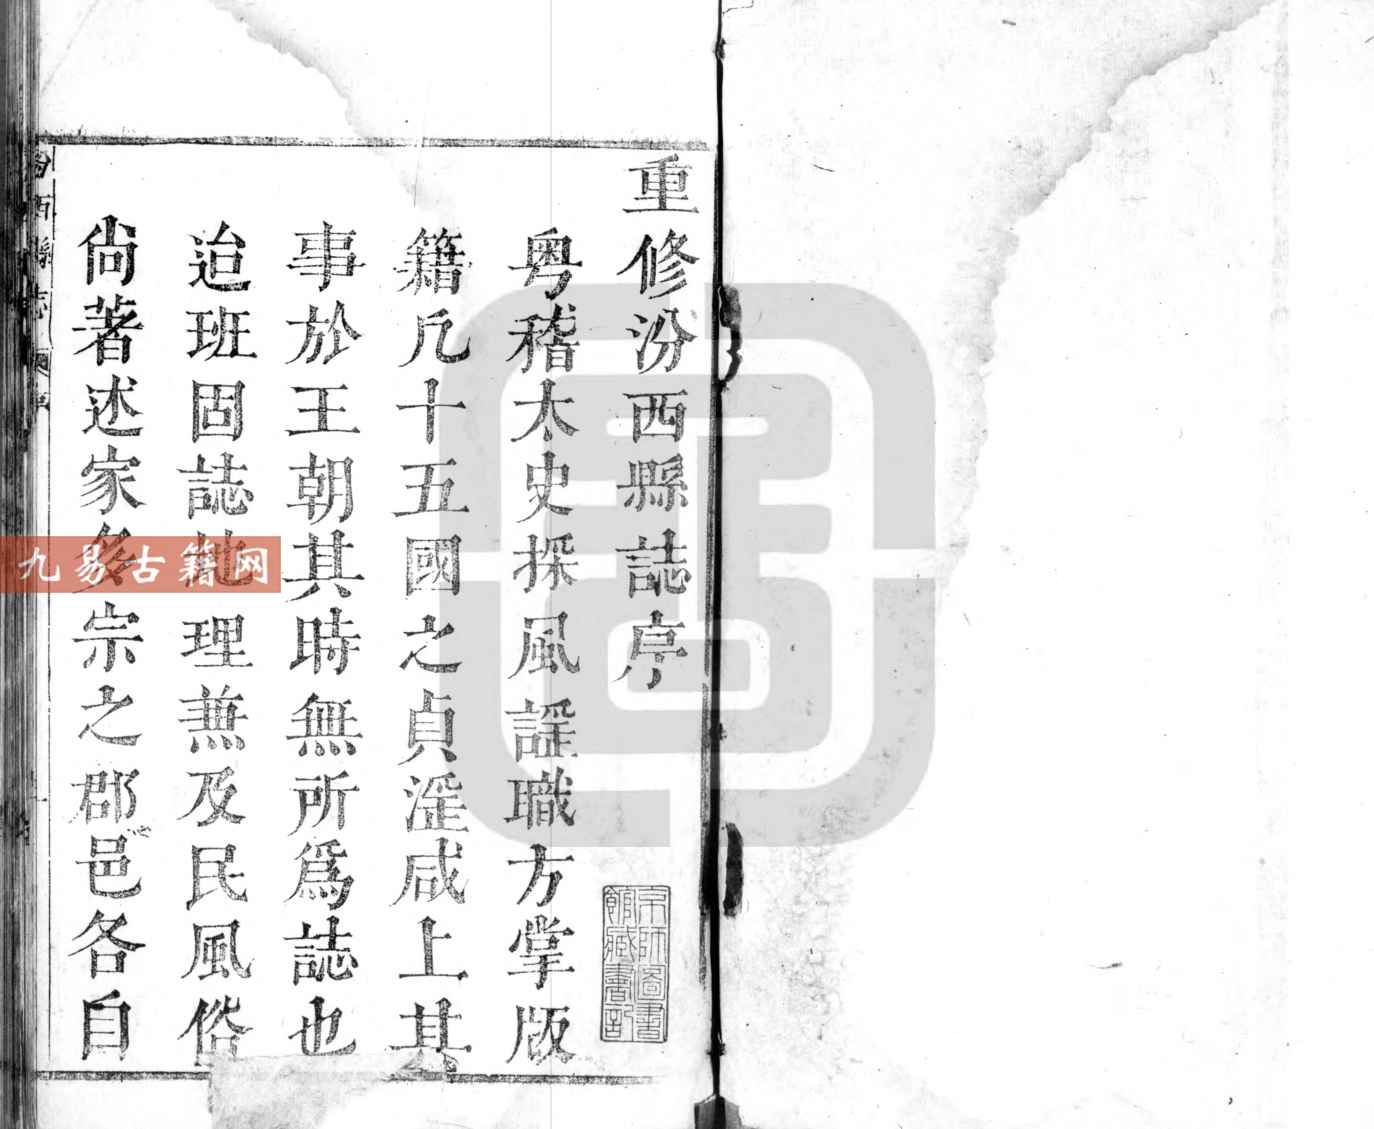 重修汾西縣誌序
粤稽太史採風謡職方掌版
籍凡十五國之貞淫咸上其
事於王朝其時無所爲誌也
迨班固誌地理兼及民風俗
尚著述家多宗之郡邑各自
京師圖書
館藏書記
九易古籍网